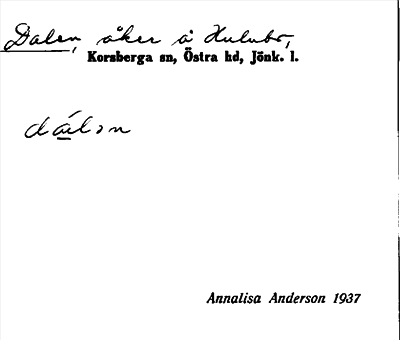 Dalen, åker å Hulubo,
Korsberga sn, Östra hd, Jönk. l.
Annalisa Anderson 1937